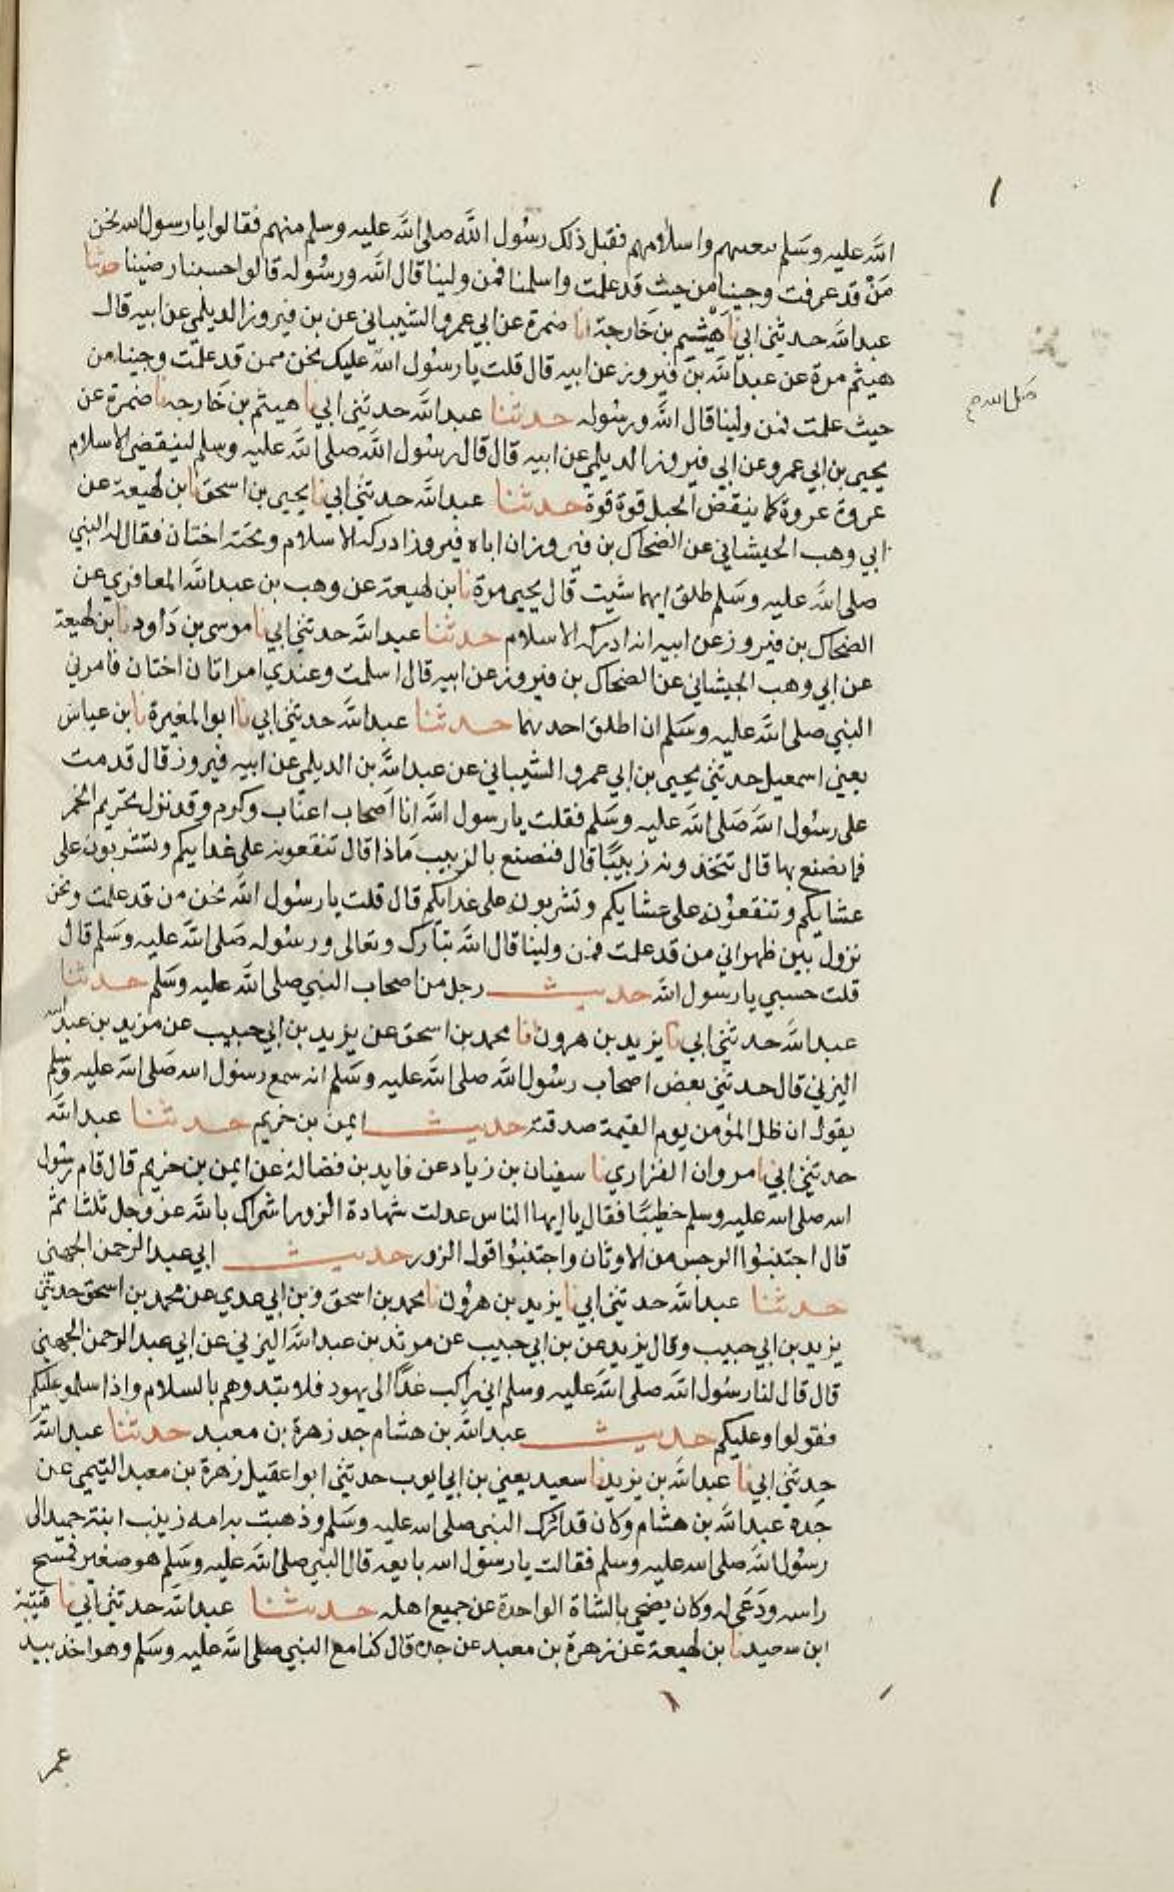 الله عليه وسلم ببيعتهم واسلامهم فقبل ذلك رسول الله صلى الله عليه وسلم منهم فقالوا يا رسول الله نحن
من قد عرفت وجينا من حيث قد علمت واسلمنا فمن ولينا قال الله ورسوله قالوا حسبنا رضينا حدثنا
عبد الله حدثني ابي نا هيثم بن خارجة انا ضمرة عن ابي عمرو الشيباني عن بن فيروز الديلمي عن ابيه قال
هيثم مرة عن عبد الله بن فيروز عن ابيه قال قلت يا رسول الله عليك نحن ممن قد علمت وجينا من
صلى الله صح
حيث علمت فمن ولينا قال الله ورسوله حدثنا عبد الله حدثني ابي نا هيثم بن خارجه نا ضمرة عن
يحيى بن ابي عمرو عن ابي فيروز الديلمي عن ابيه قال قال رسول الله صلى الله عليه وسلم لينقضي الاسلام
عروة عروة كما ينقض الحبل قوة قوة حدثنا عبد الله حدثني ابي نا يحيى بن اسحق نا بن لهيعة عن
ابي وهب الجيشاني عن الضحاك بن فيروز ان اباه فيروز ادركه الاسلام وتحته اختان فقال له النبي
صلى الله عليه وسلم طلق ايهما شيت قال يحيى مرة نا بن لهيعة عن وهب بن عبد الله المعافري عن
الضحاك بن فيروز عن ابيه انه ادركه الاسلام حدثنا عبد الله حدثني ابي نا موسى بن داود نا بن لهيعة
عن ابي وهب الجيشاني عن الضحاك بن فيروز عن ابيه قال اسلمت وعندي امراتان اختان فامرني
النبي صلى الله عليه وسلم ان اطلق احدهما حدثنا عبد الله حدثني ابي نا ابوا المغيرة نا بن عياش
يعني اسمعيل حدثني يحيى بن ابي عمرو الشيباني عن عبد الله بن الديلمي عن ابيه فيروز قال قدمت
على رسول الله صلى الله عليه وسلم فقلت يا رسول الله انا اصحاب اعناب وكرم وقد نزل تحريم الخمر
فما نصنع بها قال تتخذونه زبيبًا قال فنصنع بالزبيب ماذا قال تنقعونه على غدايكم وتشربون على
عشايكم وتنقعون على عشايكم وتشربون على غدايكم قال قلت يا رسول الله نحن من قد علمت ونحن
نزول بين ظهراني من قد علمت فمن ولينا قال الله تبارك وتعالى ورسوله صلى الله عليه وسلم قال
قلت حسبي يا رسول الله حديث رجل من اصحاب النبي صلى الله عليه وسلم حدثنا
عبد الله حدثني ابي نا يزيد بن هرون انا محمد بن اسحق عن يزيد بن ابي حبيب عن مزيد بن عبد الله
اليزني قال حدثني بعض اصحاب رسول الله صلى الله عليه وسلم انه سمع رسول الله صلى الله عليه وسلم
يقول ان ظل المؤمن يوم القيمة صدقته حديث ايمن بن خريم حدثنا عبد الله
حدثني ابي نا مروان الفزاري نا سفيان بن زياد عن فايد بن فضالة عن ايمن بن خريم قال قام رسول
الله صلى الله عليه وسلم خطيبًا فقال يا ايها الناس عدلت شهادة الزور اشراك بالله عز وجل ثلثا ثم
قال اجتنبوا الرجس من الاوثان واجتنبوا قول الزور حديث ابي عبد الرحمن الجهني
حدثنا عبد الله حدثني ابي نا يزيد بن هرون نا محمد بن اسحق وبن ابي عدي عن محمد بن اسحق حدثني
يزيد بن ابي حبيب وقال يزيد عن بن ابي حبيب عن مرثد بن عبد الله اليزني عن ابي عبد الرحمن الجهني
قال قال لنا رسول الله صلى الله عليه وسلم اني راكب غدًا الى يهود فلا تبتدوهم بالسلام واذا سلموا عليكم
فقولوا وعليكم حديث عبد الله بن هشام جد زهرة بن معبد حدثنا عبد الله
حدثني ابي نا عبد الله بن يزيد نا سعيد يعني بن ابي ايوب حدثني ابوا عقيل زهرة بن معبد التيمي عن
جده عبد الله بن هشام وكان قد ادرك النبي صلى الله عليه وسلم وذهبت به امه زينب ابنة حميد الى
رسول الله صلى الله عليه وسلم فقالت يا رسول الله بايعه قال النبي صلى الله عليه وسلم هو صغير فمسح
راسه ودعى له وكان يضحي بالشاة الواحدة عن جميع اهله حدثنا عبد الله حدثني ابي نا قتيبة
ابن سعيد نا بن لهيعة عن زهرة بن معبد عن جده قال كنا مع النبي صلى الله عليه وسلم وهو اخذ بيد
عمر